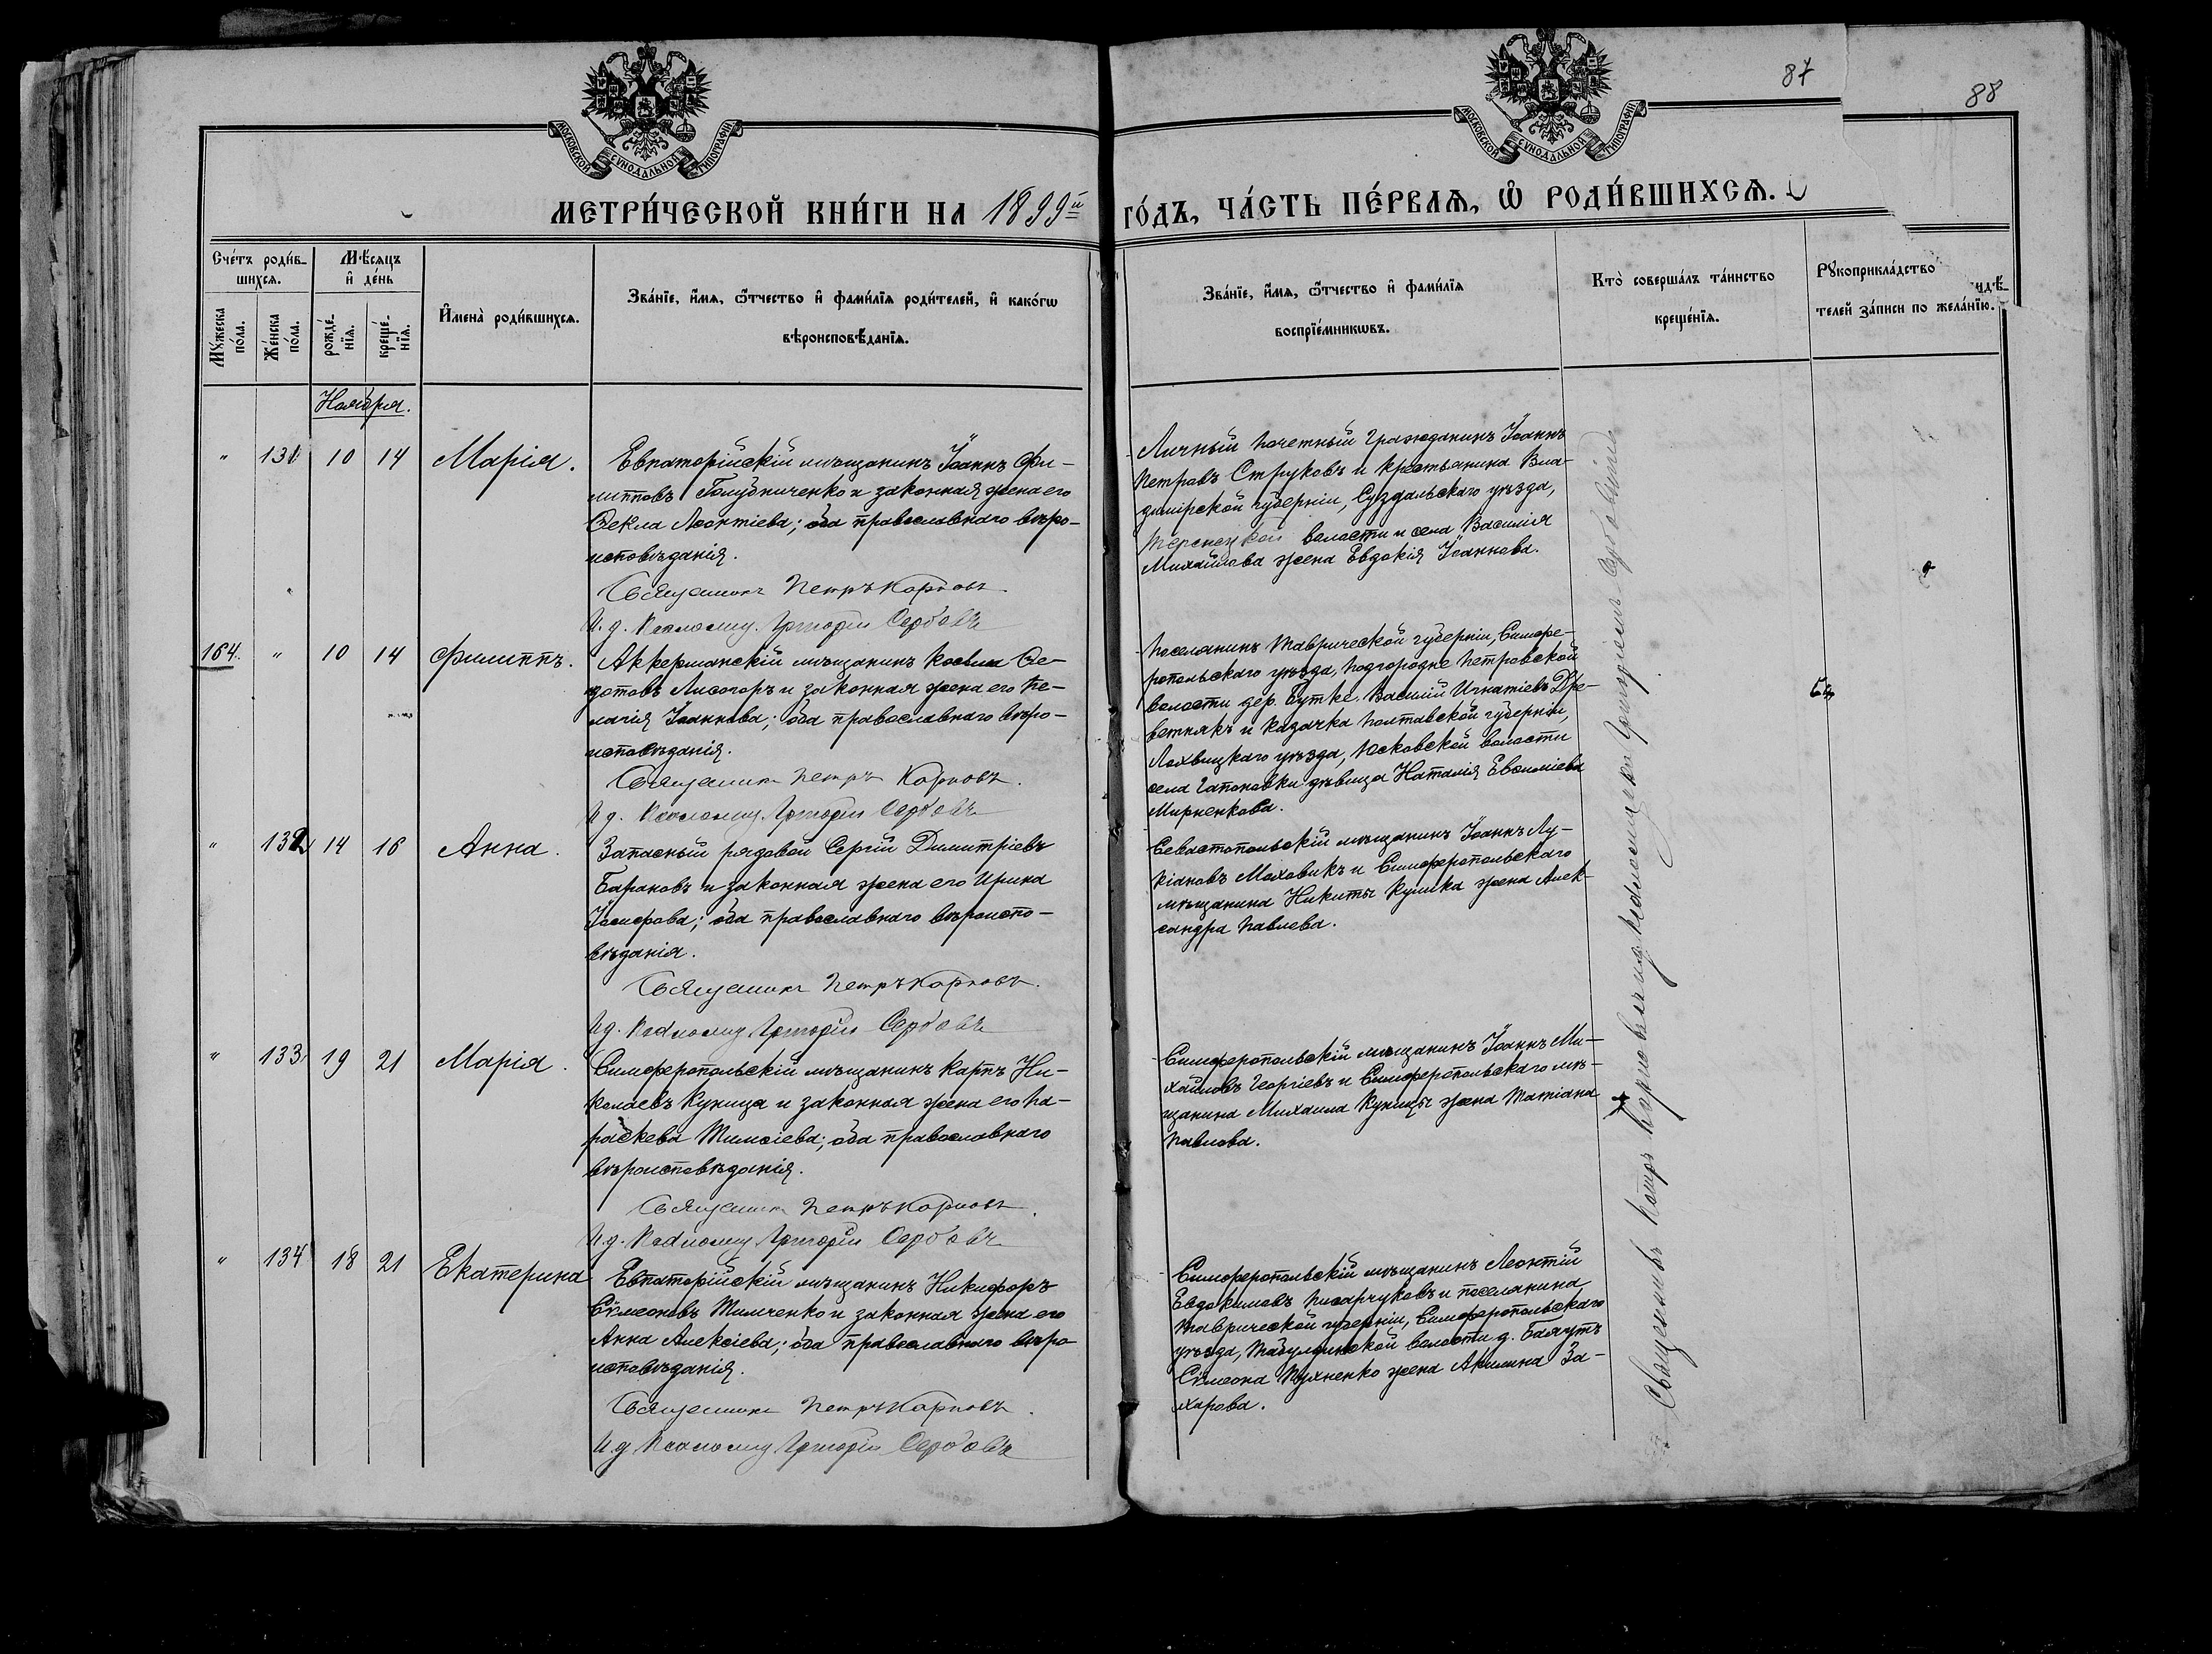 87
88
МОСКОВСКОЙ СУНОДАЛЬНОЙ ТИПОГРАФІИ
МОСКОВСКОЙ СУНОДАЛЬНОЙ ТИПОГРАФІИ
МЕТРИ́ЧЕСКОЙ КНИ́ГИ НА 1899й
ГО́ДЪ, ЧА́СТЬ ПЕ́РВАѦ, Ѡ҆ РОДИ́ВШИХСѦ.
Сче́тъ роди́в-
шихсѧ.
Мѣ́сѧцъ
и҆ де́нь
Мꙋ́жеска
по́ла.
Же́нска
по́ла.
рожде́-
нїѧ.
креще́-
нїѧ.
И҆мена̀ роди́вшихсѧ.
Зва́нїе, и҆́мѧ, ѻ҆́тчество и҆ фами́лїѧ роди́телей, и҆ како́гѡ
вѣроисповѣ́данїѧ.
Зва́нїе, и҆́мѧ, ѻ҆́тчество и҆ фами́лїѧ
воспрїе́мникѡвъ.
Кто̀ соверша́лъ та́инство
креще́нїѧ.
Рꙋкоприкла́дство
идѣ́-
телей за́писи по жела́нїю.
Ноября.
" 131 10 14 Марія.
Евпаторійскій мѣщанинъ Іоаннъ Фи-
липповъ Голубниченко и законная жена его
Ѳекла Леонтіева; оба православнаго вѣро-
исповѣданія.
Священникъ Петръ Карповъ
И. д. Псаломщ. Григорій Сербовъ
Личный почетный гражданинъ Іоаннъ
Петровъ Струковъ и крестьянина Вла-
димірской губерніи, Суздальскаго уѣзда,
волости и села Василія
Михайлова жена Евдокія Іоаннова.
164. " 10 14 Филиппъ.
Аккерманскій мѣщанинъ Косьма Ѳе-
дотовъ Лисогоръ и законная жена его Пе-
лагія Іоаннова; оба православнаго вѣро-
исповѣданія.
Священникъ Петръ Карповъ.
И д. Псаломщ. Григорій Сербовъ
Поселянинъ Таврической губерніи, Симфе-
ропольскаго уѣзда, Подгородне Петровской
волости дер. Бутке Василій Игнатіевъ Дре-
ветнякъ и казачка Полтавской губерніи,
Лохвицкаго уѣзда, Юсковской волости
села Гапоновки дѣвица Наталія Евфиміева
Мирненкова.
" 132 14 16 Анна.
Запасный рядовой Сергій Димитріевъ
Барановъ и законная жена его Ирина
Іосифова; оба православнаго вѣроиспо-
вѣданія.
Священникъ Петръ Карповъ.
И д. Псаломщ Григорій Сербовъ
Севастопольскій мѣщанинъ Іоаннъ Лу-
кіановъ Маховикъ и Симферопольскаго
мѣщанина Никиты Кулика жена Алек-
сандра Павлева.
" 133 19 21 Марія.
Симферопольскій мѣщанинъ Карпъ Ни-
колаевъ Куница и законная жена его Па-
раскева Тимоѳіева; оба православнаго
вѣроисповѣданія.
Священникъ Петръ Карповъ.
И д. Псаломщ Григорій Сербовъ
Симферопольскій мѣщанинъ Іоаннъ Ми-
хайловъ Георгіевъ и Симферопольскаго мѣ-
щанина Михаила Куницы жена Татіана
Павлова.
" 134 18 21 Екатерина
Евпаторійскій мѣщанинъ Никифоръ
Сѵмеоновъ Тимченко и законная жена его
Анна Алексіева; оба православнаго вѣро
исповѣданія.
Священникъ Петръ Карповъ.
И д Псаломщ Григорій Сербовъ
Симферопольскій мѣщанинъ Леонтій
Евдокимовъ Писарчуковъ и поселянина
Таврической губерніи, Симферопольскаго
уѣзда, Табулдинской волости д. Баяутъ
Сѵмеона жена Акилина За-
харова.
Священникъ Петръ Карповъ и д. псаломщика Григорій Сербовъ